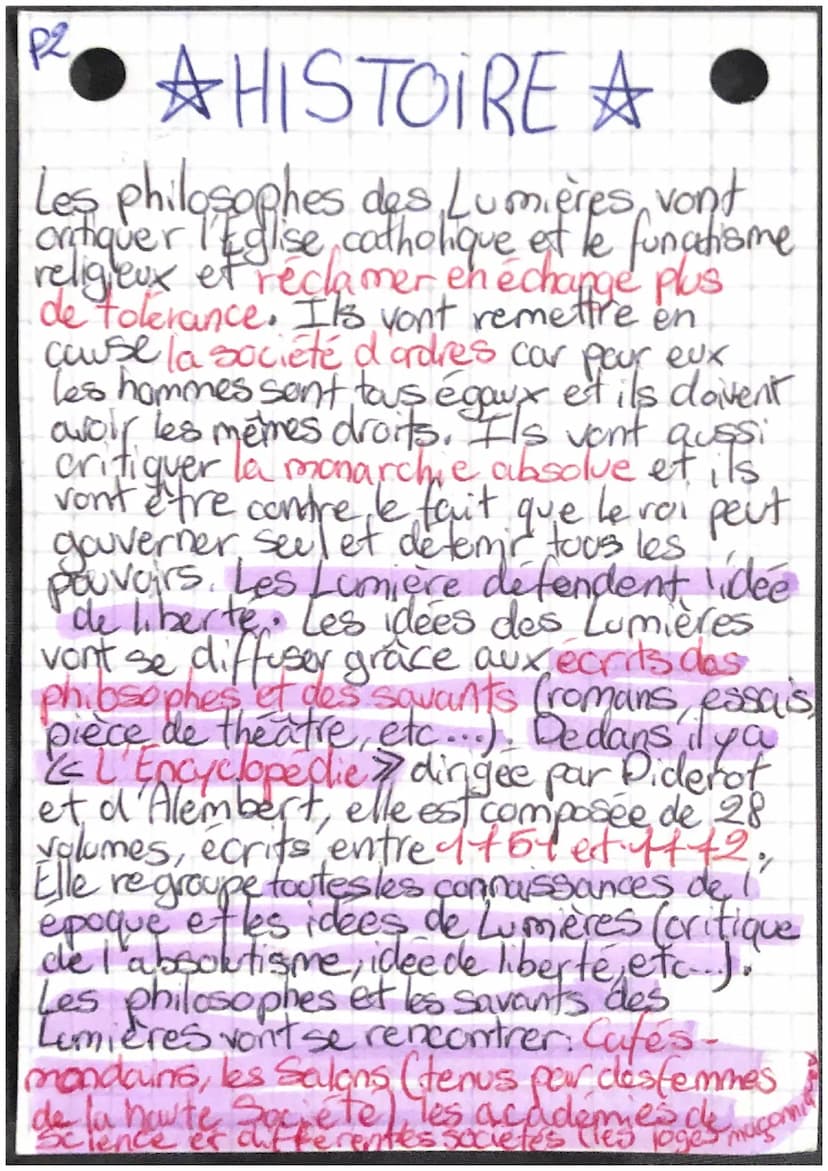 P2
☆ HISTOIRE ☆
Les philosophes des Lumières vont
critiquer l'Église catholique et le funatisme
religieux et réclamer en échange plus
de tolérance. Ils vont remettre en
cause la société d'ordres car pour eux
les hommes sont tous égaux et ils doivent
avoir les mêmes droits. Ils vont aussi
critiquer la monarchie absolue et ils
vont être contre le fait que le roi peut
gouverner seul et détenir tous les
pouvoirs. Les Lumière défendent l'idée
de liberté. Les idées des Lumières
vont se diffuser grâce aux écrits des
philosophes et des savants (romans, essais,
pièce de théâtre, etc...). Dedans il y a
« L'Encyclopédie » dirigée par Diderot
et d'Alembert, elle est composée de 28
volumes, écrits entre 1751 et 1772.
Elle regroupe toutes les connaissances de l'
époque et les idées de Lumières (critique
de l'absolutisme, idée de liberté, etc...).
Les philosophes et les savants des
Lumières vont se rencontrer: Cafés-
mondains, les Salons (tenus par des femmes
de la haute Société) les académies de
Science et différentes sociétés (les loges maçonniques